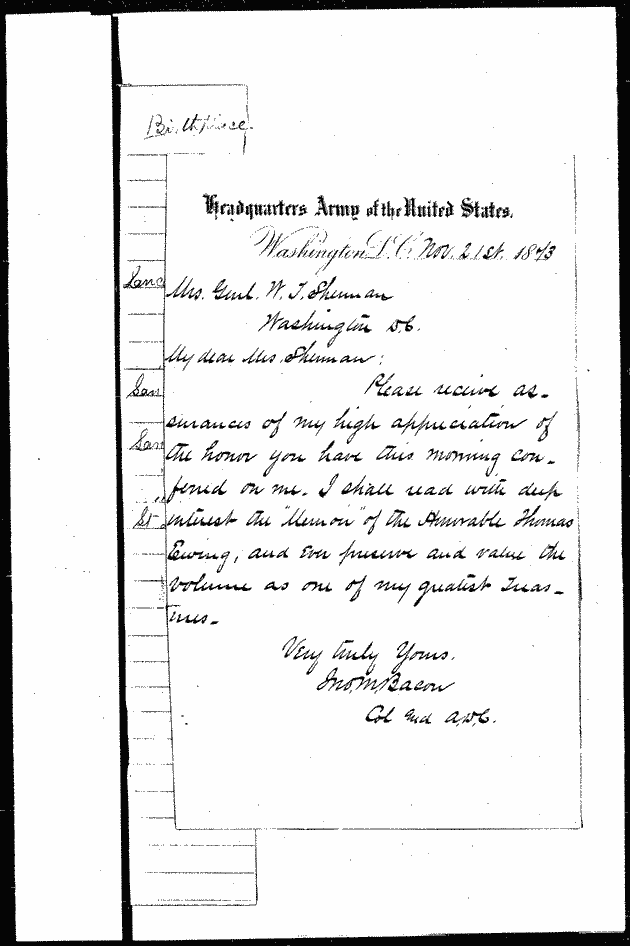 Birthplace.
Headquarters Army of the United States.
Washington, D.C. Nov. 21st. 1873
Sanc
Mrs. Genl. W. T. Sherman
Washington D.C.
My dear Mrs. Sherman:
San
Please receive as-
surances of my high appreciation of
San
the honor you have this morning con-
ferred on me. I shall read with deep
St
interest the "Memoir" of the Honorable Thomas
Ewing; and ever preserve and value the
volume as one of my greatest treas-
ures.
Very truly Yours.
Jno. M. Bacon
Col and A.D.C.